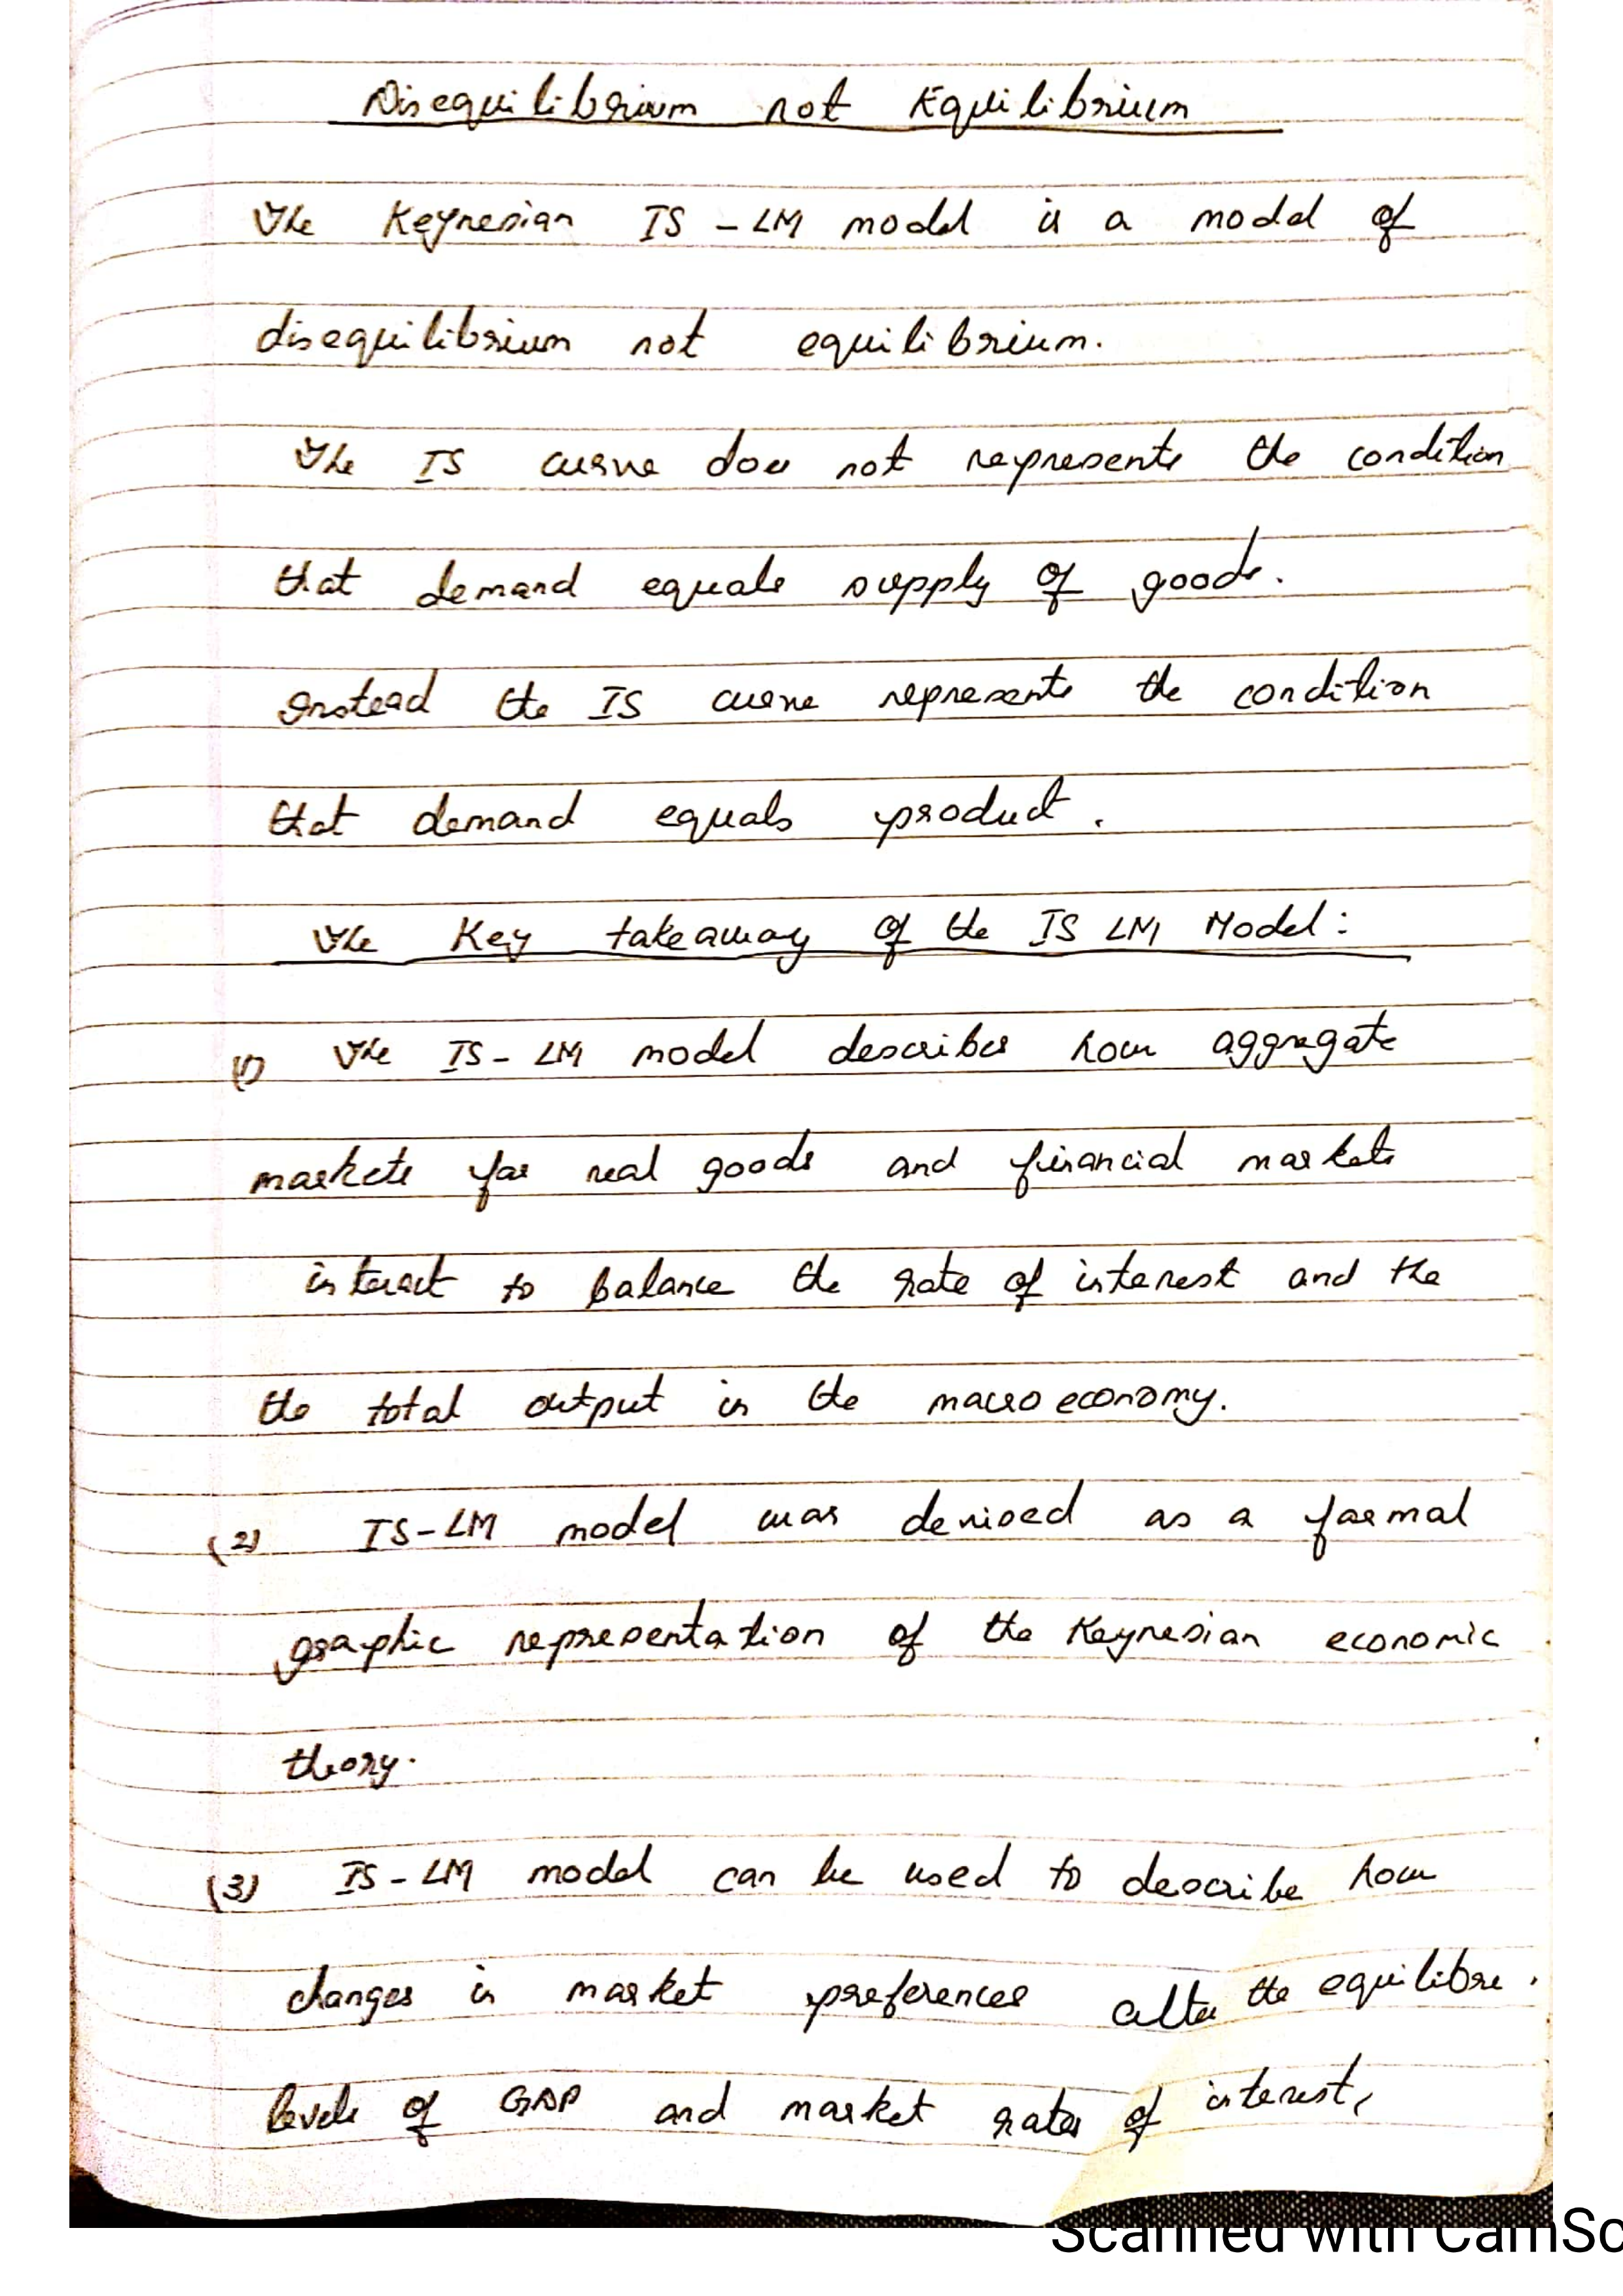 Disequilibrium not Equilibrium
The Keynesian IS - LM model is a model of
disequilibrium not equilibrium.
The IS curve does not represents the condition
that demand equals supply of goods.
Instead the IS curve represents the condition
that demand equals product.
The Key takeaway of the IS LM Model:
(1) The IS - LM model describes how aggregate
markets for real goods and financial markets
interact to balance the rate of interest and the
the total output in the macro economy.
(2) IS-LM model was devised as a formal
graphic representation of the Keynesian economic
theory.
(3) IS - LM model can be used to describe how
changes in market preferences alter the equilibre.
levels of GDP and market rates of interest,
Scanned with CamSc